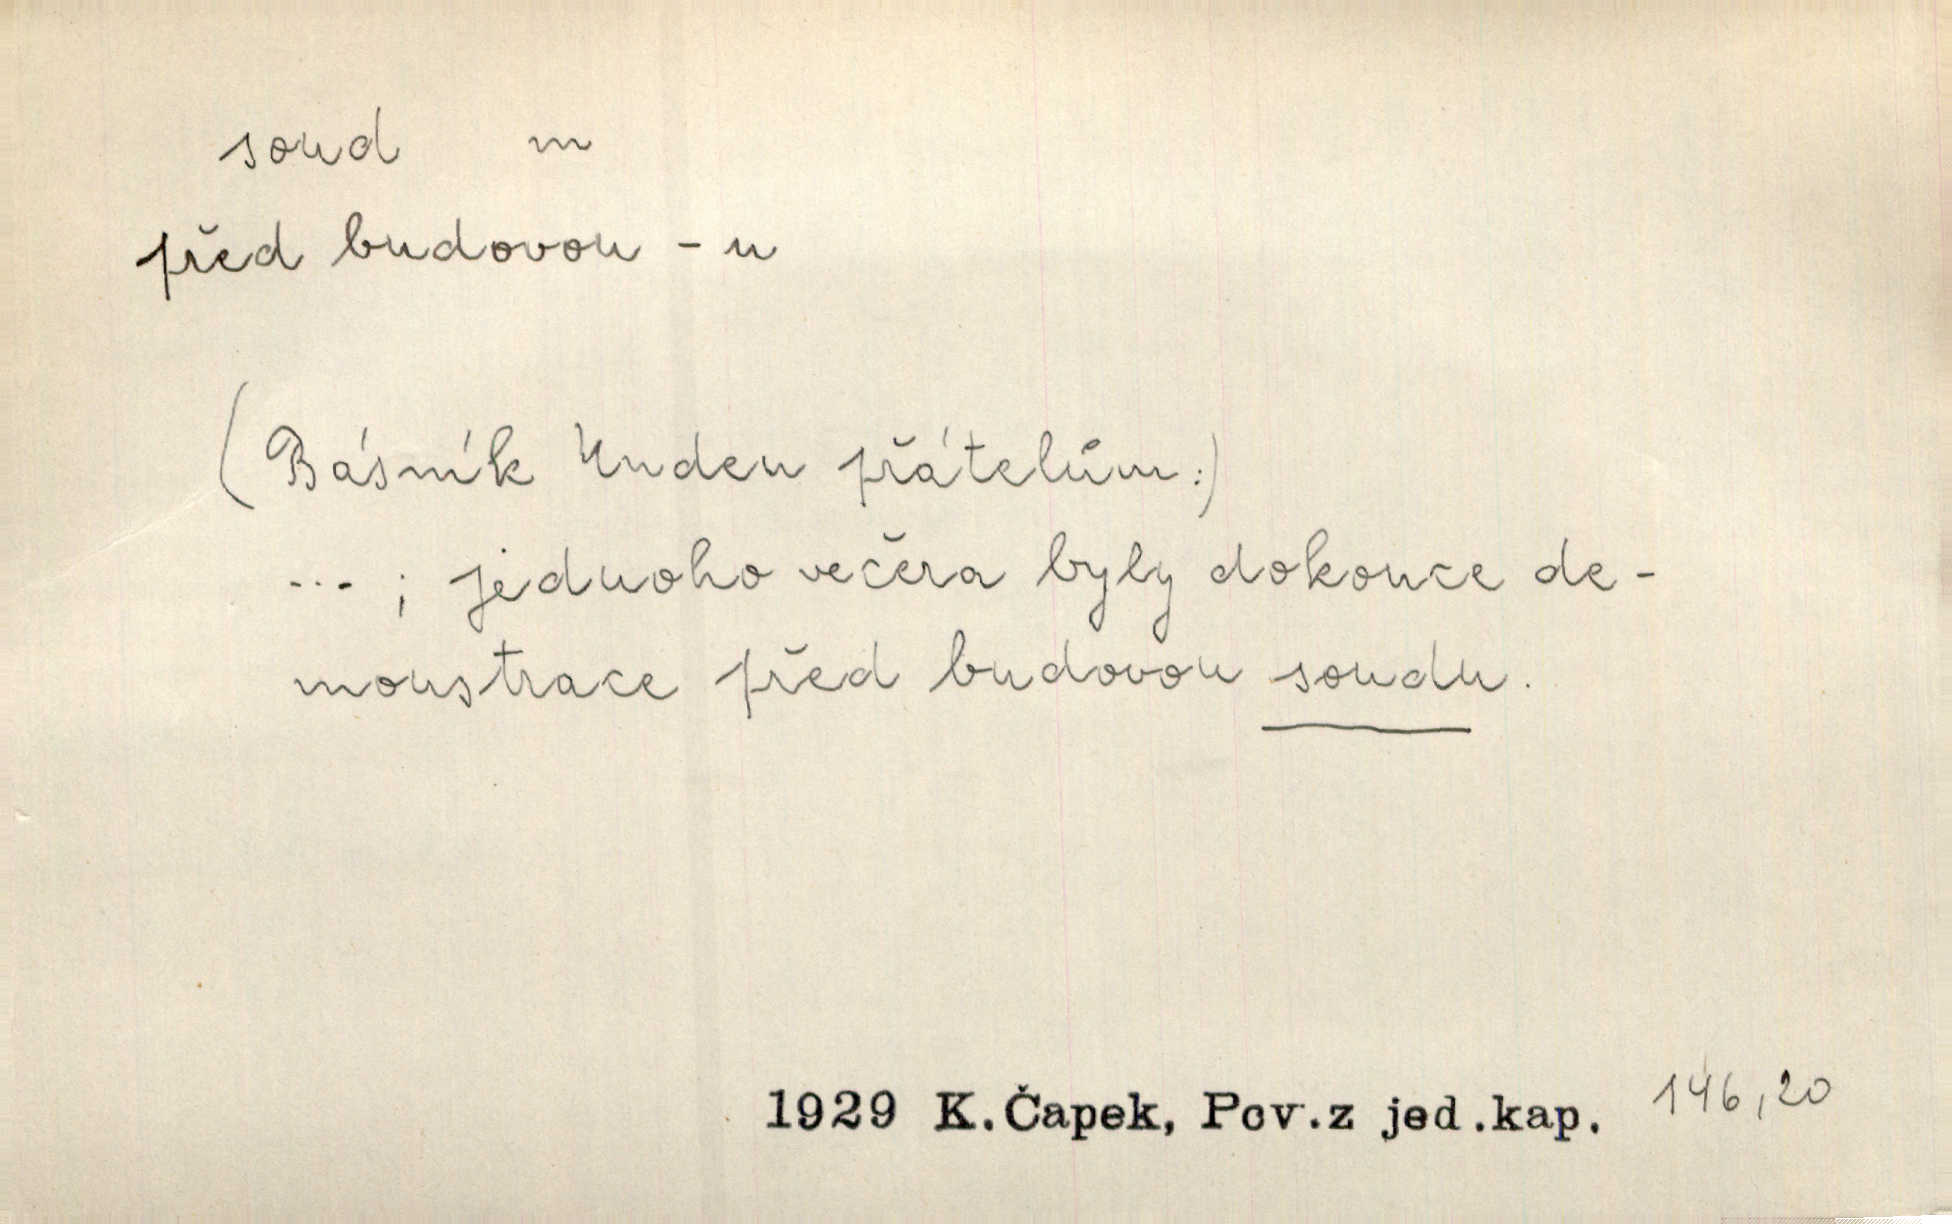 soud m
před budovou -u
(Básník Unden přátelům:)
... ; jednoho večera byly dokonce de-
monstrace před budovou soudu.
1929 K.Čapek, Pov.z jed.kap. 146,20